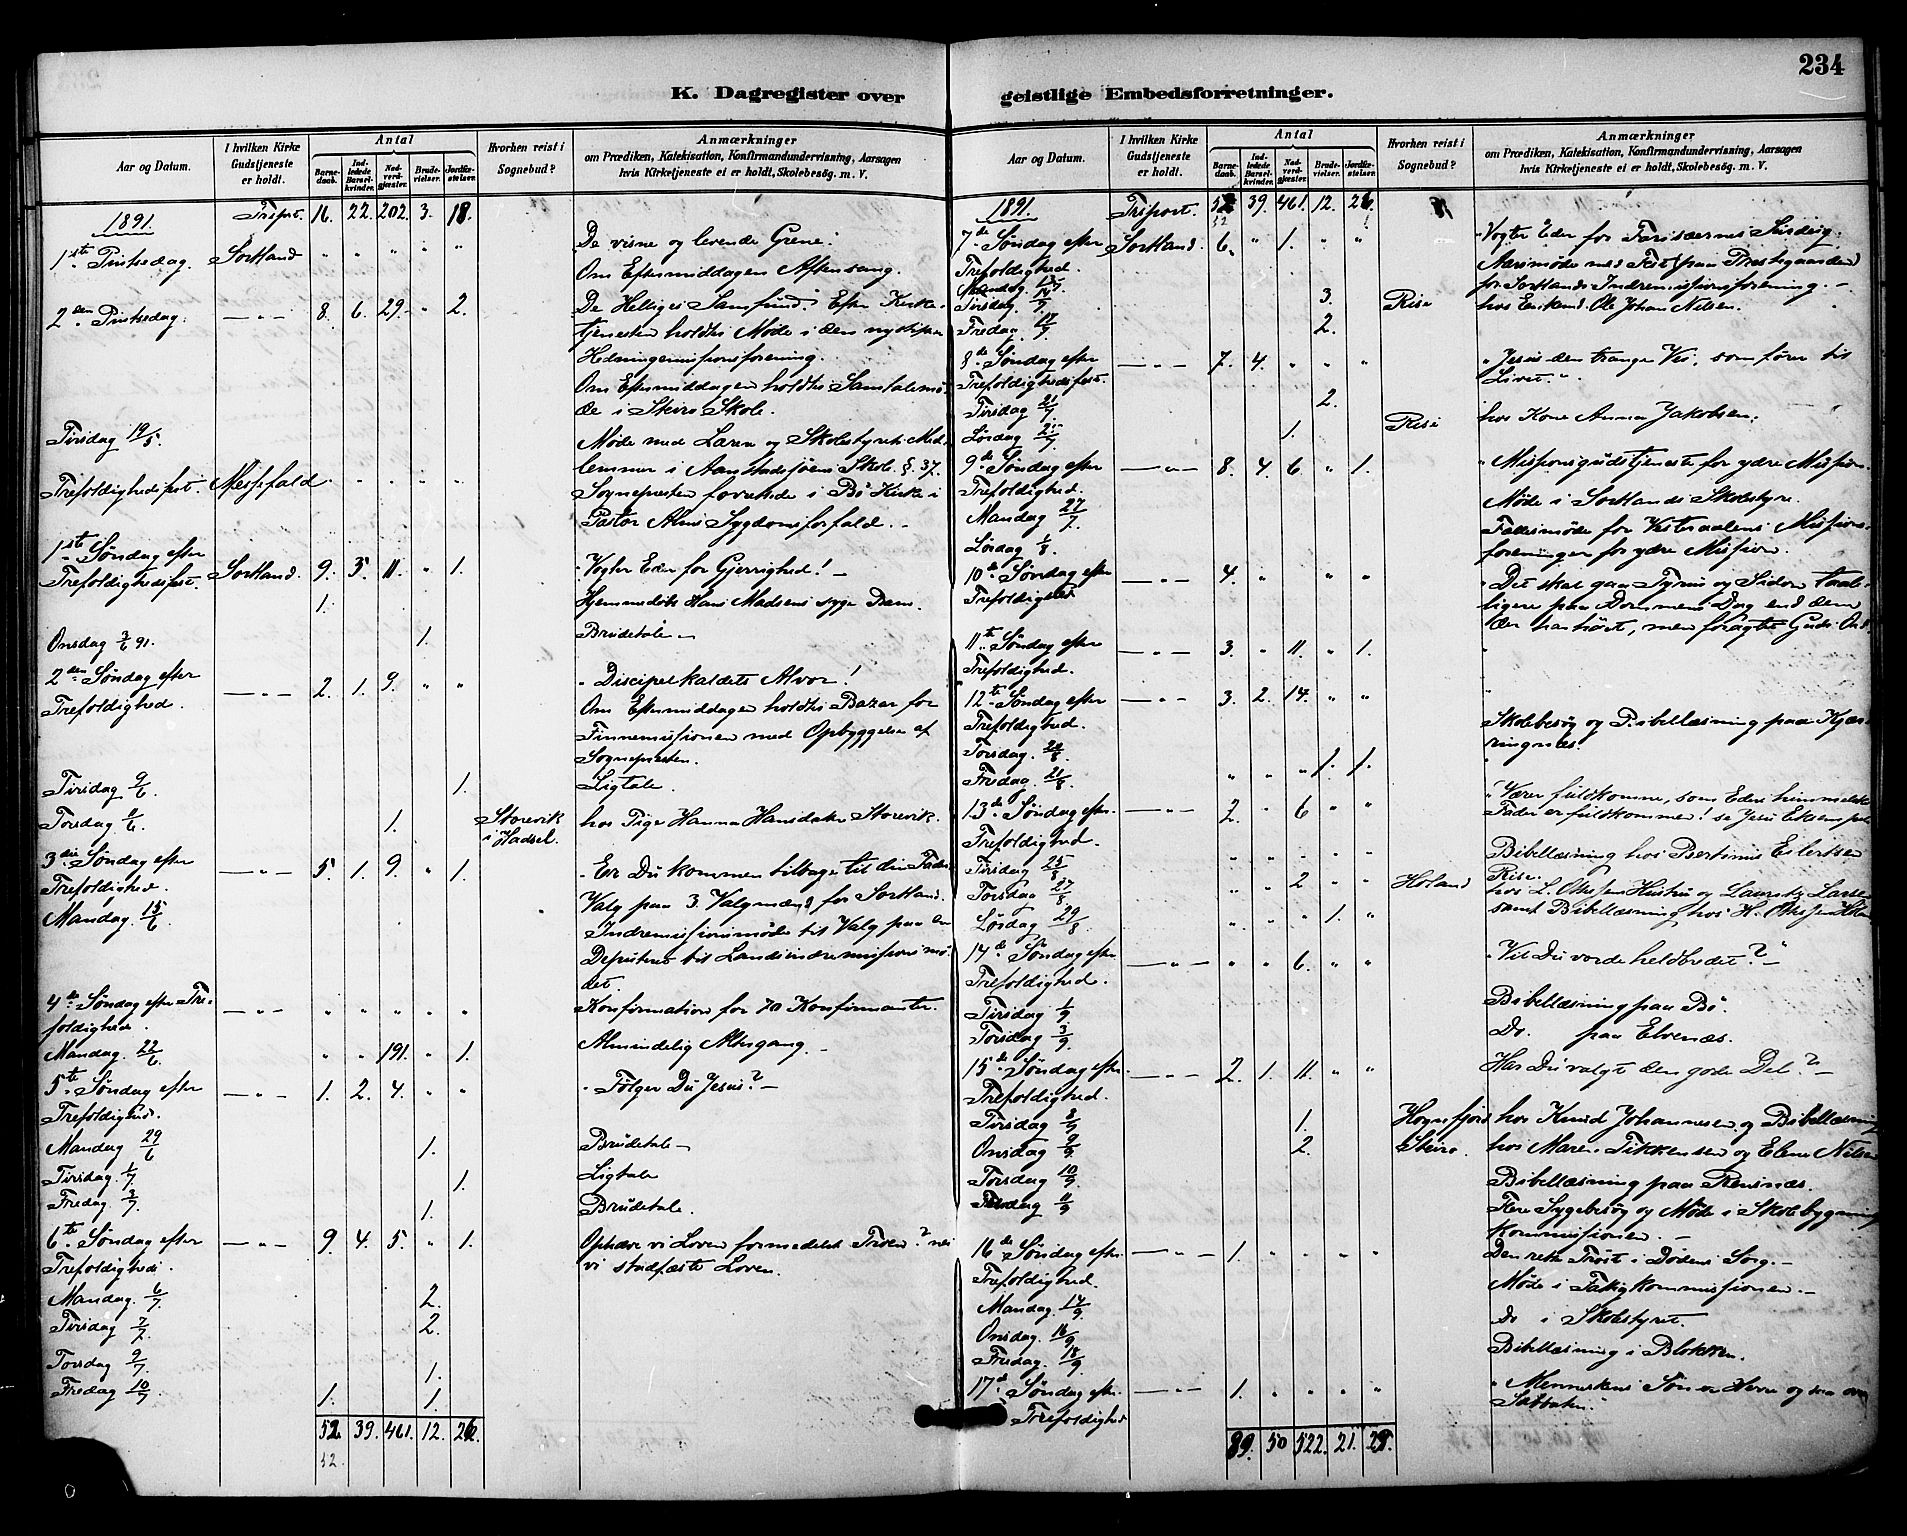 234
K. Dagregister over
geistlige Embedsforretninger.
Aar og Datum.
I hvilken Kirke Gudstjeneste er holdt.
Antal
Barnedaab.
Indledede Barselkvinder.
Nadverdgjæster.
Brudevielser.
Jordfæstelser.
Hvorhen reist i Sognebud?
Anmærkninger
om Prædiken, Katekisation, Konfirmandundervisning, Aarsagen
hvis Kirketjeneste ei er holdt, Skolebesøg. m. V.
1891. Trspt. 16. 22. 202. 3. 18.
1ste Pintsedag. Sortland " " " " " De visne og levende Grene.
Om Eftermiddagen Aftensang.
2den Pintsedag. — " — 8. 6. 29. " 2. De Helliges Samfund. Efter Kirke-
tjenesten holdtes Møde i den
Hedningemissionsforening.
Om Eftermiddagen holdtes Samtalemø-
de i Steiro Skole.
Tirsdag 19/5. Møde med Lærer og Skolestyrets Med-
lemmer i Aanstadsjøens Skole §. 37.
Trefoldighedsfest. Messefald Sognepresten forrettede i Bø Kirke i
Pastor Alms Sygdomsforfald. -
1ste Søndag efter
Trefoldighedsfest. Sortland. 9. 3. 11. " 1. Vogter Eder for Gjerrighed! -
1. Hjemmedøbt Hans Madsens syge Barn.
Onsdag 3/6 91. 1. Brudetale -
2den Søndag efter
Trefoldighed. — " — 2. 1. 9. " " Discipelkaldets Alvor!
Om Eftermiddagen holdtes Bazar for
Finnemissionen med Opbyggelse af
Sognepresten.
Tirsdag 9/6 1. Ligtale.
Torsdag 11/6. 1. Storevik i Hadsel. hos Pige Hanna Hansdatter Storevik.
3die Søndag efter
Trefoldighed. — " — 5. 1. 9. " 1. Er Du kommen tilbage til din Fader
Mandag. 15/6 Valg paa 3 Valgmænd for Sortland.
Indremissionsmøde til Valg paa en
Deputeret til Landsindremissionsmø-
det.
4de Søndag efter Tre-
foldighed. — " — " " " " " Konfirmation for 70 Konfirmanter.
Mandag. 22/6 " " 191. " 1. Almindelig Altergang. -
5te Søndag efter
Trefoldighed. — " — 1. 2. 4. " " Følger Du Jesus? -
Mandag 29/6 1. Brudetale -
Tirsdag 1/7 1. Ligtale
Fredag. 3/7 1. Brudetale.
6te Søndag efter
Trefoldighed. — " — 9. 4. 5. " 1. Ophæve vi Loven formedelst Troen? nei
vi stadfæste Loven.
Mandag. 6/7 2.
Tirsdag 7/7. 2.
Torsdag 9/7. 1.
Fredag 10/7 1. 1.
52. 39. 461. 12. 26.
52.
Aar og Datum.
I hvilken Kirke Gudstjeneste er holdt.
Antal
Barnedaab.
Indledede Barselkvinder.
Nadverdgjæster.
Brudevielser.
Jordfæstelser.
Hvorhen reist i Sognebud?
Anmærkninger
om Prædiken, Katekisation, Konfirmandundervisning, Aarsagen
hvis Kirketjeneste ei er holdt, Skolebesøg. m. V.
1891. Trsport. 52 39. 461. 12. 26.
52
7de Søndag efter
Trefoldighed. Sortland. 6. " 1. " " Vogter Eder for Farisæernes Surdeig.
Mandag 13/7. Aarsmøde med Fest (paa Prestegaarden)
for Sortlands Indremissionsforening. -
Tirsdag. 14/7. 3. Risø hos Enkemd. Ole Johan Nilsen.
Fredag. 17/7. 2.
8de Søndag efter
Trefoldighedsfest. — " — 7. 4. " " " Jesus den trange Vei, som fører til
Livet.
Tirsdag 21/7 2.
Lørdag 25/7 1. Risø hos Kone Anna Jakobsen.
9de Søndag efter
Trefoldighed. — " — 8. 4. 6. " 1. Missionsgudstjeneste for ydre Mission.
Mandag 27/7 Møde i Sortlands Skolestyre.
Lørdag. 1/8. Fællesmøde for Vesteraalens Missions-
foreninger for ydre Mission.
10de Søndag efter
Trefoldighed — " — 4. " " " Det skal gaa Tyrus og Sidon taale-
ligere paa Dommens Dag end dem
der har hørt, men foragtet Guds Ord.
11te Søndag efter
Trefoldighed. — " — 3. " 11. " 1.
12te Søndag efter
Trefoldighed. — " — 3. 2. 14. " "
Torsdag. 20/8. Skolebesøg og Bibellæsning paa Kjær-
ringnæs.
Fredag 21/8 " " " 1. 1.
13de Søndag efter
Trefoldighed. — " — 2. " 6 " " Værer fuldkomne, som Eders himmelske
Fader er fuldkommen! se Jesu
Tirsdag 25/8 Bibellæsning hos Bertinus Eilertsen
Risø.
Torsdag 27/8. " " 2 " " Holand hos L. Hustru og
samt Bibellæsning hos H.
Lørdag 29/8 " " " 1. "
14de Søndag efter
Trefoldighed. — " — " " 6. " " Vil Du vorde helbredet? -
Tirsdag 1/9 Bibellæsning paa Bø.
Torsdag 3/9. Do. paa Elvenæs.
15de Søndag efter.
Trefoldighed. — " — 2. 1. 11. " " Har Du valgt den gode Del? -
Tirsdag 8/9 1. Hognfjord hos Knud Johannesen og Bibellæsning
Onsdag 9/9. 2. Steiro. hos Maren Tikkensen og Elene Nilsen
Torsdag 10/9 Bibellæsning paa Rensnæs.
Fredag 11/9 Flere Sygebesøg og Møde i Skolebygnings
Kommissionen. -
16de Søndag efter
Trefoldighed. — " — 1. " " " " Den rette Trøst i Dødens Sorg. -
Mandag. 14/9. Møde i Fattigkommissionen. -
Onsdag. 16/9 Do i Skolestyret.
Fredag. 18/9. Bibellæsning i Blokken.
17de Søndag efter
Trefoldighed — " — 1. " " " " Menneskens Søn er Herre og saa over
Sabbaten.
89. 50 522. 21. 29.